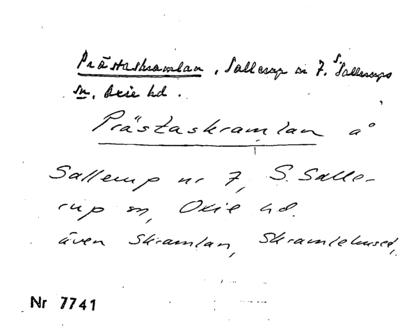 Prästaskramlan, Sallerup nr 7, S. Sallerups
sn, Oxie hd.
Prästaskramlan å
Sallerup nr 7, S. Salle-
rup sn, Oxie hd.
även Skramlan, Skramlehuset,
Nr 7741